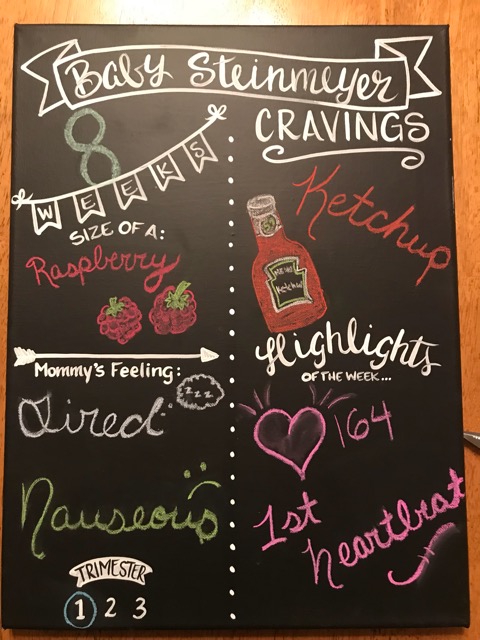 Baby Steinmeyer
8
WEEKS
SIZE OF A:
Raspberry
Mommy's Feeling:
zzz
Tired
Nauseous
TRIMESTER
1 2 3
CRAVINGS
Ketchup
Ketchup
Highlights
OF THE WEEK...
164
1st
heartbeat